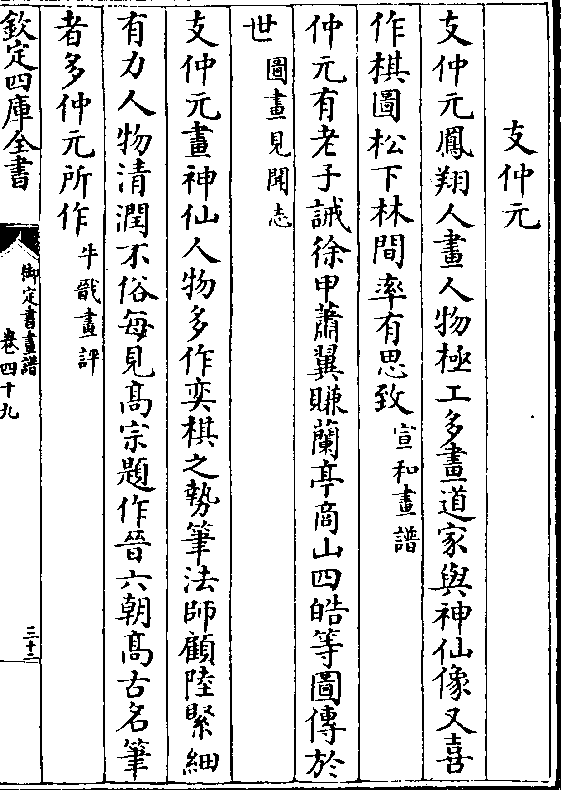 支仲元
支仲元鳳翔人畫人物極工多畫道家與神仙像又喜
作棋圖松下林間率有思致宣和畫譜
仲元有老子誡徐甲蕭翼賺蘭亭商山四皓等圖傳於
世圖畫見聞志
支仲元畫神仙人物多作奕棋之勢筆法師顧陸緊細
有力人物清潤不俗每見髙宗題作晉六朝髙古名筆
者多仲元所作牛戩畫評
欽定四庫全書
御定書畫譜
卷四十九
三十二